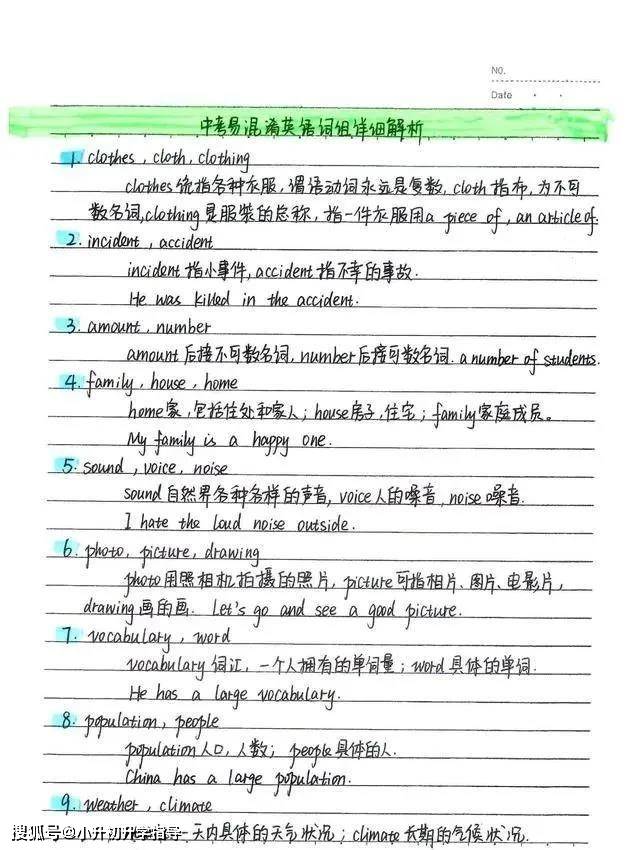 NO.
Date
中考易混淆英语词组详细解析
1. clothes, cloth, clothing
clothes统指各种衣服,谓语动词永远是复数, cloth指布,为不可
数名词,clothing是服装的总称,指一件衣服用a piece of, an article of.
2. incident, accident
incident指小事件, accident指不幸的事故.
He was killed in the accident.
3. amount, number
amount后接不可数名词, number后接可数名词. a number of students.
4. family, house, home
home家,包括住处和家人; house房子,住宅; family家庭成员。
My family is a happy one.
5. sound, voice, noise
sound自然界各种各样的声音, voice人的嗓音, noise噪音.
I hate the loud noise outside.
6. photo, picture, drawing
photo用照相机拍摄的照片, picture可指相片、图片、电影片,
drawing画的画. Let's go and see a good picture.
7. vocabulary, word
vocabulary词汇,一个人拥有的单词量; word具体的单词.
He has a large vocabulary.
8. population, people
population人口,人数; people具体的人.
China has a large population.
9. weather, climate
一天内具体的天气状况; climate长期的气候状况.
搜狐号@小升初升学指导